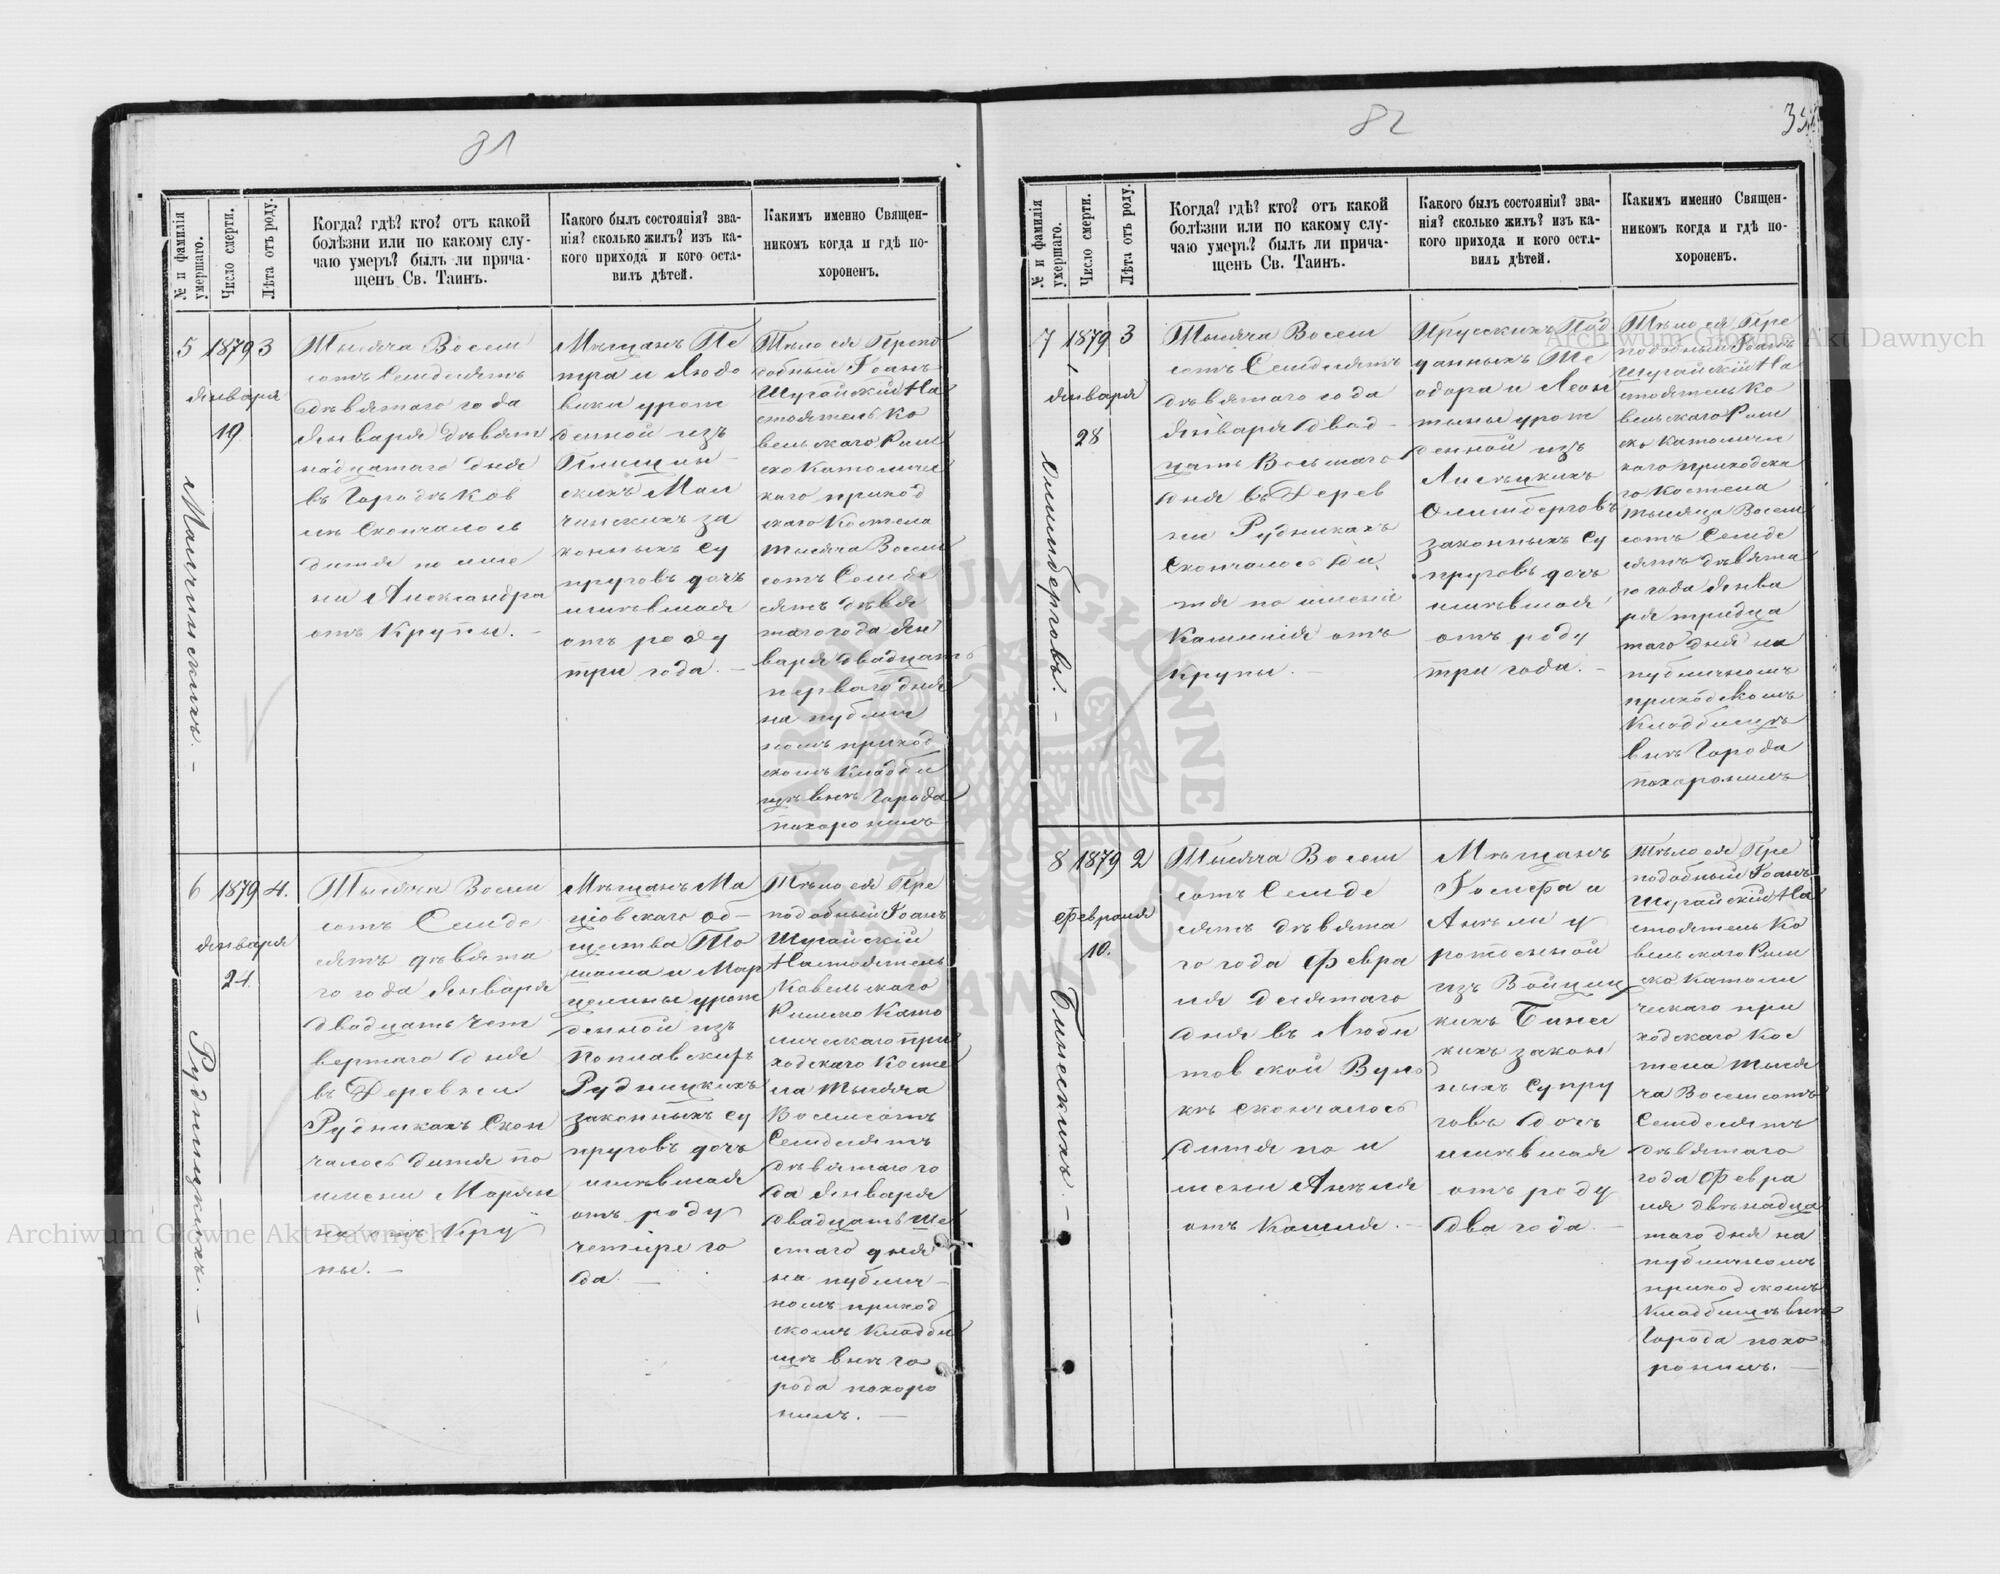 31
№ и фамилія умершаго.
Число смерти.
Лѣта отъ роду.
Когда? гдѣ? кто? отъ какой
болѣзни или по какому слу-
чаю умеръ? былъ ли прича-
щенъ Св. Таинъ.
Какого былъ состоянія? зва-
нія? сколько жилъ? изъ ка-
кого прихода и кого оста-
вилъ дѣтей.
Какимъ именно Священ-
никомъ когда и гдѣ по-
хороненъ.
5
1879
Января
19
3
Малчинскихъ. -
Тысяча Восем
сотъ Семдесятъ
дѣвятаго года
Января дѣвят
надцатаго дня
въ Городѣ Ков
лѣ Скончалось
дитя по име
ни Александра
отъ Крупы. -
Мѣщанъ Пе
тра и Людо
вики урож
денной изъ
скихъ Мал
чинскихъ за
конныхъ Су
пруговъ дочь
имѣвшая
отъ роду
три года. -
Тѣло ея Препо
добный Іоанъ
Шугайскій На
стоятель Ко
вельскаго Рим
ско Католичес
каго приход
скаго Костела
тысяча Восем
сотъ Семде
сятъ дѣвя
таго года Ян
варя двадцать
перваго дня
на публич
номъ приход
скомъ кладби
щѣ внѣ Города
похоронилъ
6
1879
Января
24.
4.
Рудницкихъ. -
Тысяча Восем
сотъ Семде
сятъ дѣвята
го года Января
двадцать чет
вертаго дня
въ Деревни
Рудникахъ Скон
чалось дитя по
имени Марян
на отъ Кру
пы. -
Мѣщанъ Ма
ціовскаго об-
щества То
маша и Мар
целины урож
денной изъ
Поплавскихъ
Рудницкихъ
законныхъ су
пруговъ дочь
имѣвшая
отъ роду
четыре го
да. -
Тѣло ея Пре
подобный Іоанъ
Шугайскій
Настоятель
Ковельскаго
Римско Като
лическаго при
ходскаго Косте
ла тысяча
Восемсотъ
Семдесятъ
дѣвятаго го
да Января
двадцать ше
стаго дня
на публич-
номъ приход
скомъ кладби
щѣ внѣ го
рода похоро
нилъ. -
82
№ и фамилія умершаго.
Число смерти.
Лѣта отъ роду.
Когда? гдѣ? кто? отъ какой
болѣзни или по какому слу-
чаю умеръ? былъ ли прича-
щенъ Св. Таинъ.
Какого былъ состоянія? зва-
нія? сколько жилъ? изъ ка-
кого прихода и кого оста-
вилъ дѣтей.
Какимъ именно Священ-
никомъ когда и гдѣ по-
хороненъ.
7
1879
Января
28
3
Олимберговъ. -
Тысяча Восем
сотъ Семдесятъ
дѣвятаго года
Января двад-
цать Восьмаго
дня въ Дерев
ни Рудникахъ
Скончалось ди
тя по имени
Камилія отъ
Крупы. -
Прусскихъ Под
данныхъ Те
одора и Леон
тыны урож
денной изъ
Лисѣцкихъ
Олимберговъ
законныхъ су
пруговъ дочь
имѣвшая
отъ роду
три года. -
Тѣло ея Пре
подобный Іоанъ
Шугайскій На
стоятель Ко
вельскаго Рим
ско Католичес
каго приходска
го Костела
тысяча Восем
сотъ Семде
сятъ дѣвята
го года Янва
ря тридца
таго дня на
публичномъ
приходскомъ
кладбищѣ
внѣ Города
похоронилъ
8
1879
Февраля
10.
2
Бинскихъ. -
Тысяча Восем
сотъ Семде
сятъ дѣвята
го года Февра
ля десятаго
дня въ Люби
товской Вуль
кѣ скончалось
дитя по и
мени Анѣля
отъ Кашля. -
Мѣщанъ
Іосифа и
Анѣли у
рожденной
изъ Войциц
кихъ Бинс
кихъ закон
ныхъ супру
говъ дочь
имѣвшая
отъ роду
два года. -
Тѣло ея Пре
подобный Іоанъ
Шугайскій На
стоятель Ко
вельскаго Рим
ско Католи
ческаго при
ходскаго Кос
тела тыся
ча Восемсотъ
Семдесятъ
дѣвятаго
года Февра
ля двѣнадца
таго дня на
публичномъ
приходскомъ
кладбищѣ внѣ
Города похо
ронилъ. -
Archiwum Główne Akt Dawnych
Archiwum Główne Akt Dawnych